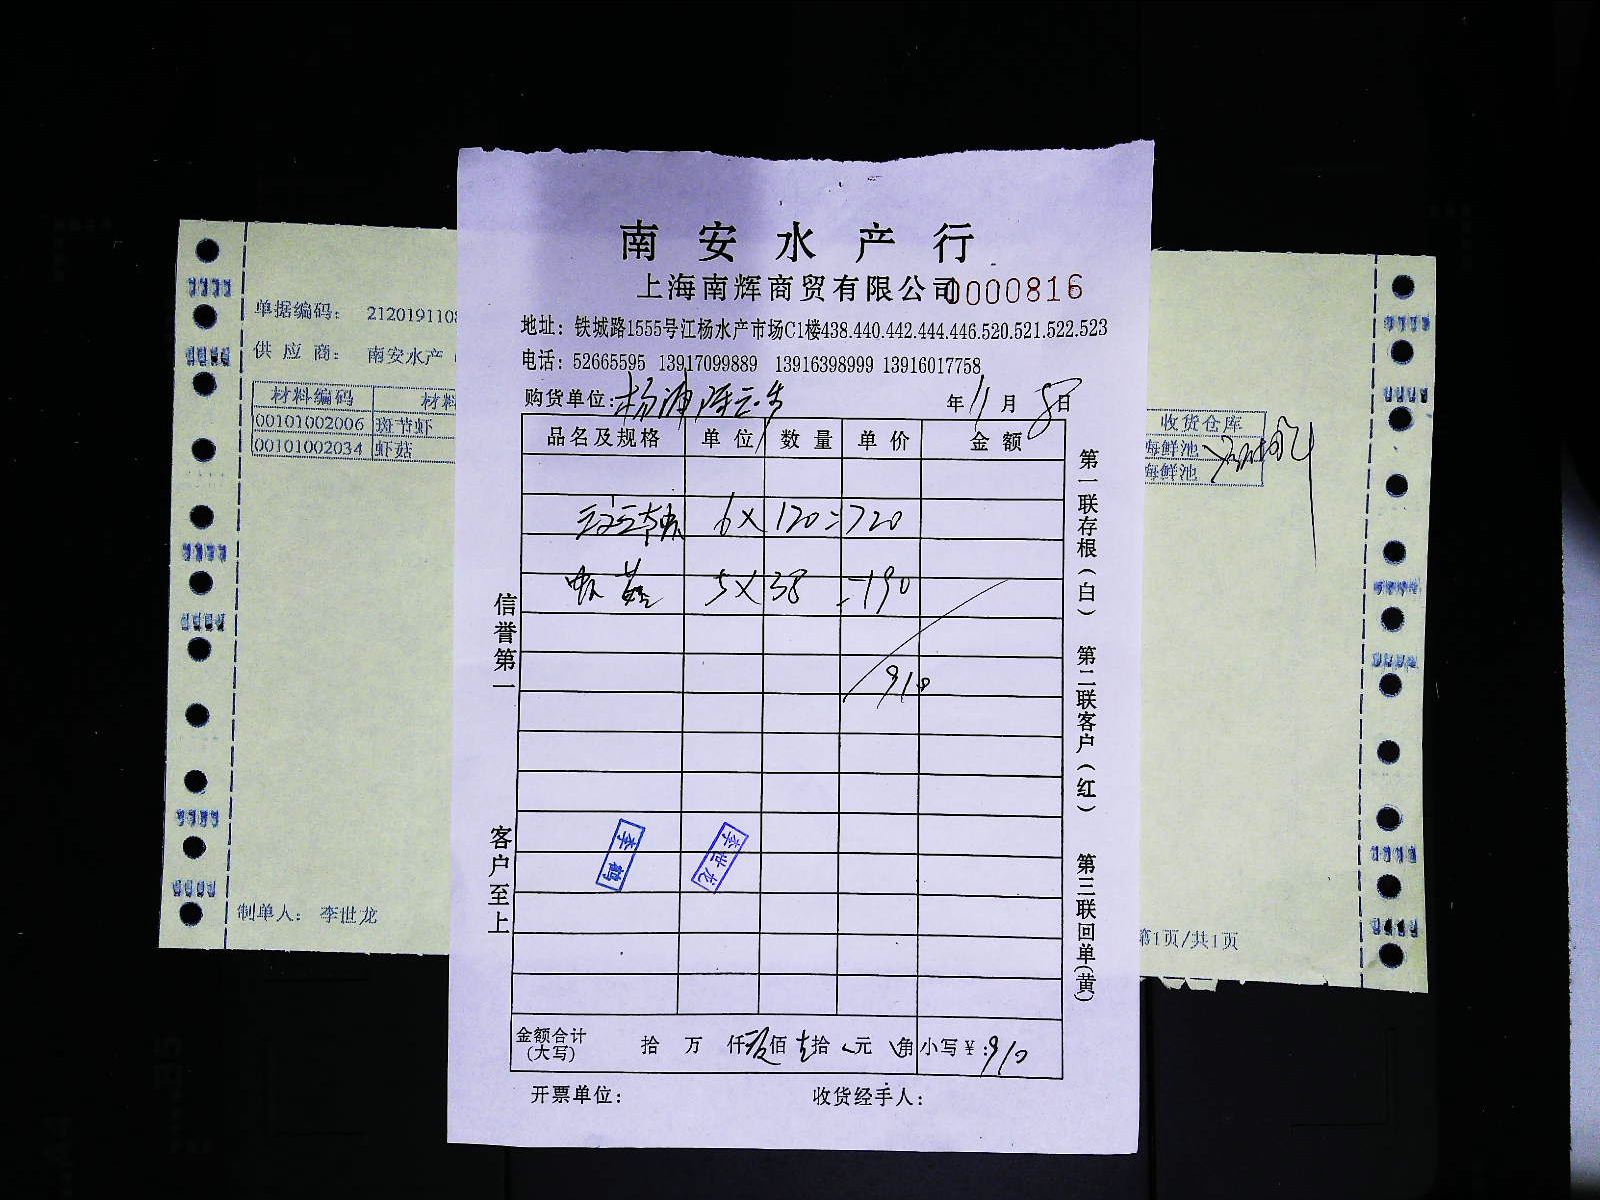 南安水产行
上海南辉商贸有限公司0000816
地址：铁城路1555号江杨水产市场C1楼438.440.442.444.446.520.521.522.523
电话：52665595 13917099889 13916398999 13916017758
购货单位：杨浦
年11月8日
品名及规格 单位 数量 单价 金额
6×120=720
虾菇 5×38=190
910
金额合计(大写) 拾 万 仟玖佰壹拾 元 角 小写¥：910
开票单位： 收货经手人：
信誉第一
客户至上
第一联存根（白） 第二联客户（红） 第三联回单（黄）
李鹤
李世龙
单据编码： 2120191108
供应商： 南安水产
材料编码 材料
00101002006 斑节虾
00101002034 虾菇
制单人： 李世龙
收货仓库
海鲜池
海鲜池
第1页/共1页